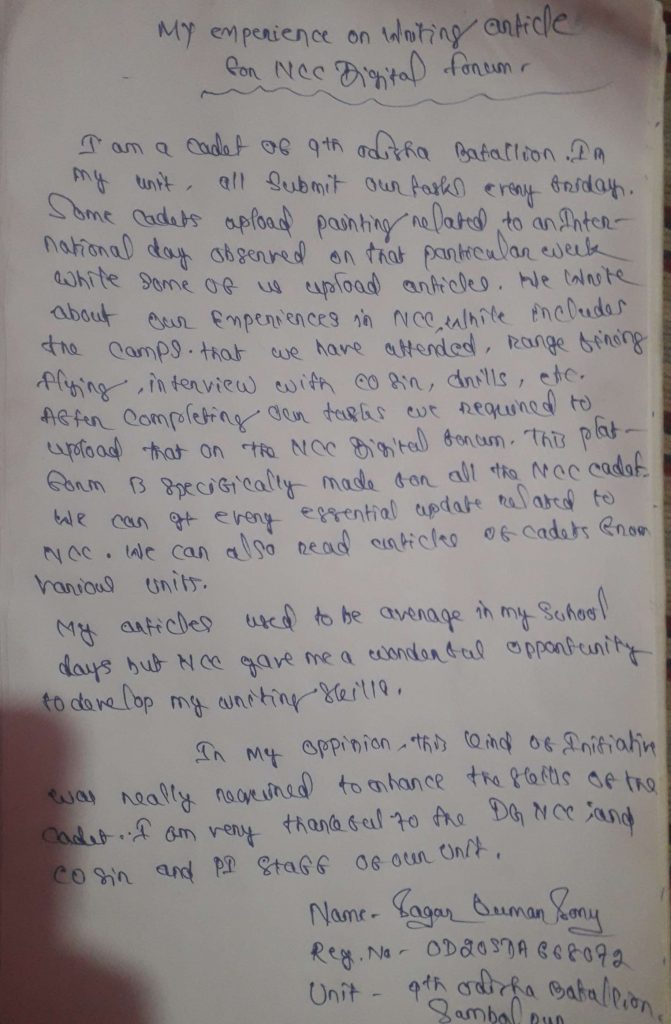 My experience on Writing article
for NCC Digital forum.
I am a cadet of 9th odisha Batallion. In
my unit, all submit our tasks every friday.
Some cadets upload painting related to an Inter-
national day observed on that particular week
while some of us upload articles. We write
about our Experiences in NCC, while includes
the camps that we have attended, range fining
flying, interview with co sir, drills, etc.
After completing our tasks we required to
upload that on the NCC Digital forum. This plat-
form is specifically made for all the NCC cadet.
We can gt every essential update related to
NCC. We can also read articles of cadets from
various units.
My articles used to be average in my School
days but NCC gave me a wonderful opportunity
to develop my writing skills.
In my oppinion, this kind of Initiative
was really required to enhance the skills of the
cadet. I am very thankful to the DG NCC and
co sir and PI staff of our unit.
Name- Sagar Suman Sony
Reg. No - OD20SDA668072
Unit - 9th odisha Batallion,
Sambalpur